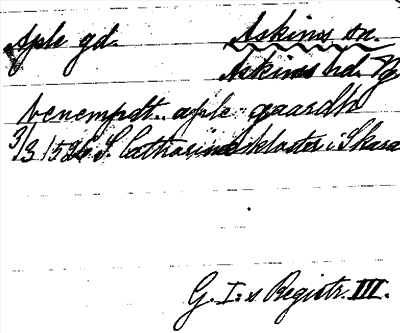 Aple gd. Askims sn.
Askims hd. Vg.
benempdt.. aple gaardh
3/3 1526 S. Catharine kloster i Skara
G. I:s Registr. III.